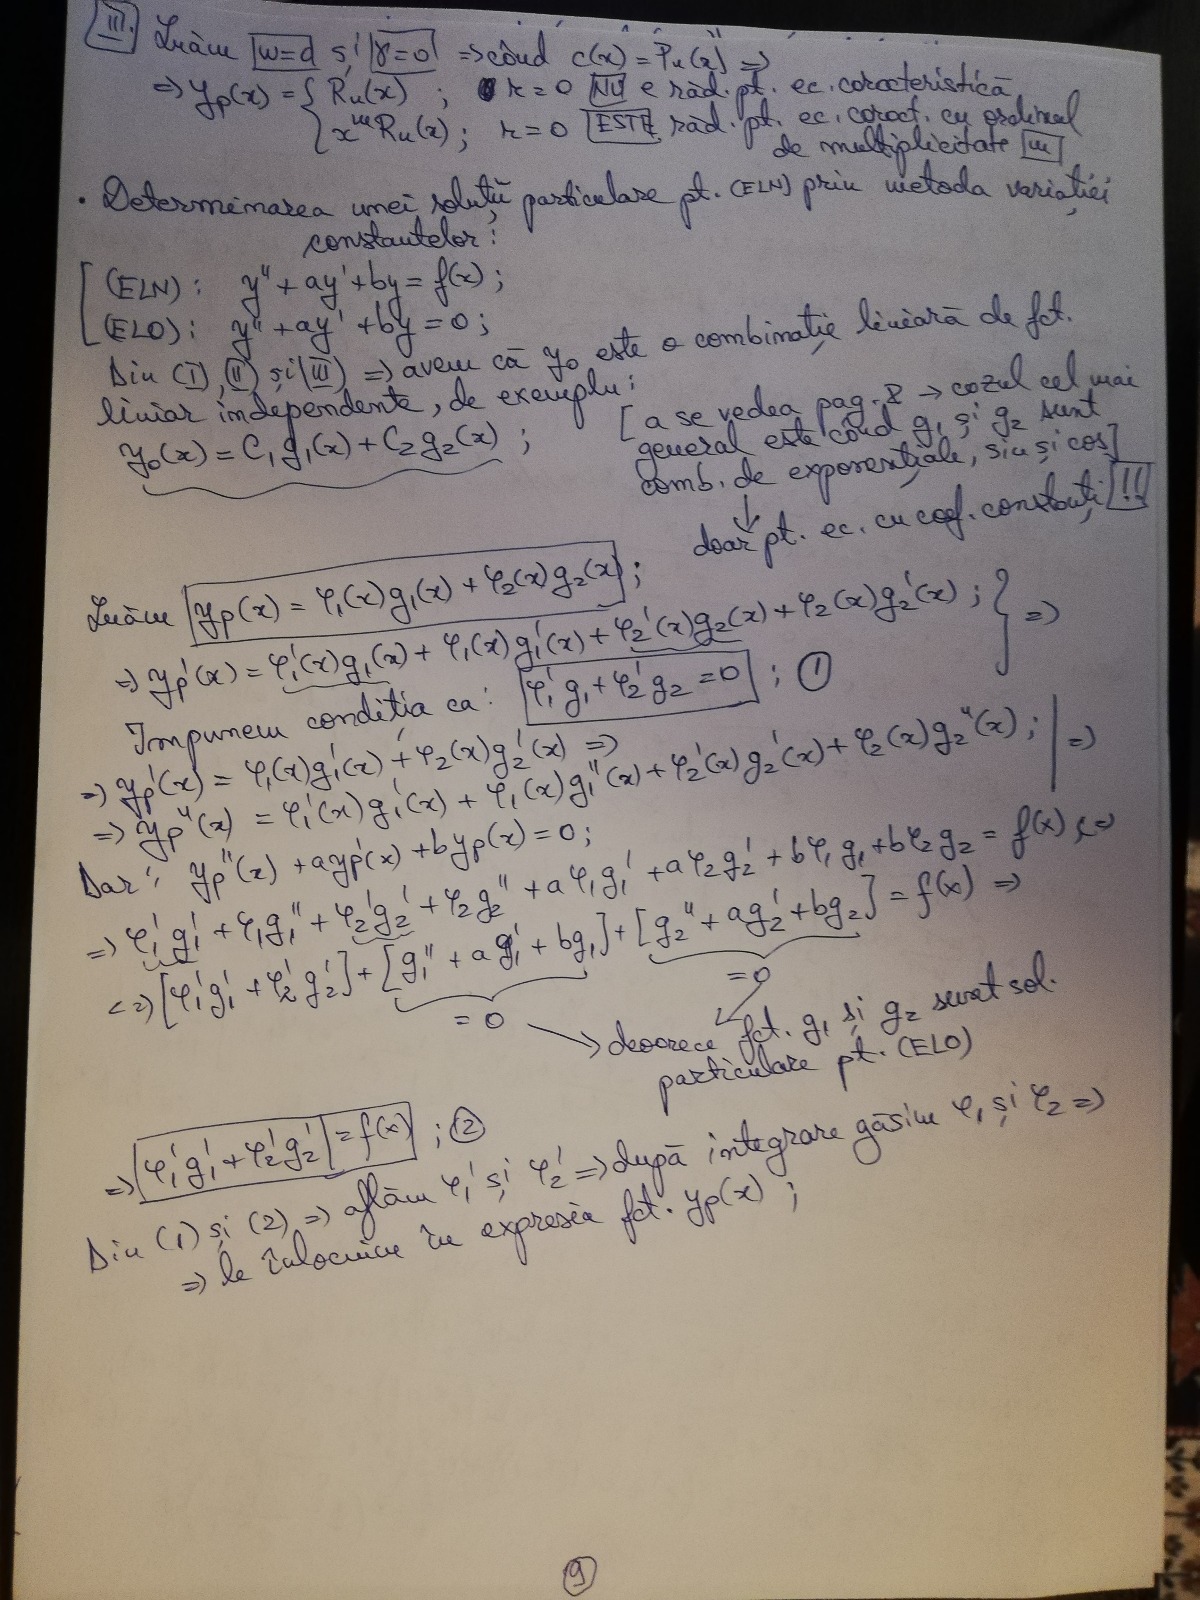 III. Luăm w=d și γ=0 ⇒ când c(x) = Pn(x) ⇒
⇒ yp(x) = { Rn(x) ; r = 0 NU e răd. pt. ec. caracteristică
x^m Rn(x) ; r = 0 ESTE răd. pt. ec. caract. cu ordinul
de multiplicitate m
• Determinarea unei soluții particulare pt. (ELN) prin metoda variației
constantelor:
(ELN): y'' + ay' + by = f(x) ;
(ELO): y'' + ay' + by = 0 ;
Din (I), (II) și (III) ⇒ avem că y₀ este o combinație liniară de fct.
liniar independente, de exemplu:
y₀(x) = C₁g₁(x) + C₂g₂(x) ;
[a se vedea pag. 8 → cazul cel mai
general este când g₁ și g₂ sunt
comb. de exponențiale, sin și cos]
↓
doar pt. ec. cu coef. constanți !!
Luăm yp(x) = φ₁(x)g₁(x) + φ₂(x)g₂(x) ;
⇒ yp'(x) = φ₁'(x)g₁(x) + φ₁(x)g₁'(x) + φ₂'(x)g₂(x) + φ₂(x)g₂'(x) ; } ⇒
Impunem condiția ca: φ₁'g₁ + φ₂'g₂ = 0 ; (1)
⇒ yp'(x) = φ₁(x)g₁'(x) + φ₂(x)g₂'(x) ⇒
⇒ yp''(x) = φ₁'(x)g₁'(x) + φ₁(x)g₁''(x) + φ₂'(x)g₂'(x) + φ₂(x)g₂''(x) ; | ⇒
Dar: yp''(x) + ayp'(x) + byp(x) = 0 ;
⇒ φ₁'g₁' + φ₁g₁'' + φ₂'g₂' + φ₂g₂'' + aφ₁g₁' + aφ₂g₂' + bφ₁g₁ + bφ₂g₂ = f(x) ⇔
⇔ [φ₁'g₁' + φ₂'g₂'] + [g₁'' + ag₁' + bg₁] + [g₂'' + ag₂' + bg₂] = f(x) ⇒
= 0 = 0
→ deoarece fct. g₁ și g₂ sunt sol.
particulare pt. (ELO)
⇒ φ₁'g₁' + φ₂'g₂' = f(x) ; (2)
Din (1) și (2) ⇒ aflăm φ₁' și φ₂' ⇒ după integrare găsim φ₁ și φ₂ ⇒
⇒ le înlocuim în expresia fct. yp(x) ;
9